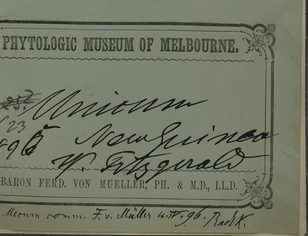 PHYTOLOGIC MUSEUM OF MELBOURNE.
Unicum
23
New Guinea
896
W. Fitzgerald
BARON FERD. VON MUELLER, PH. & M.D., LL.D.
comm. F. v. Müller 4.IV.96.